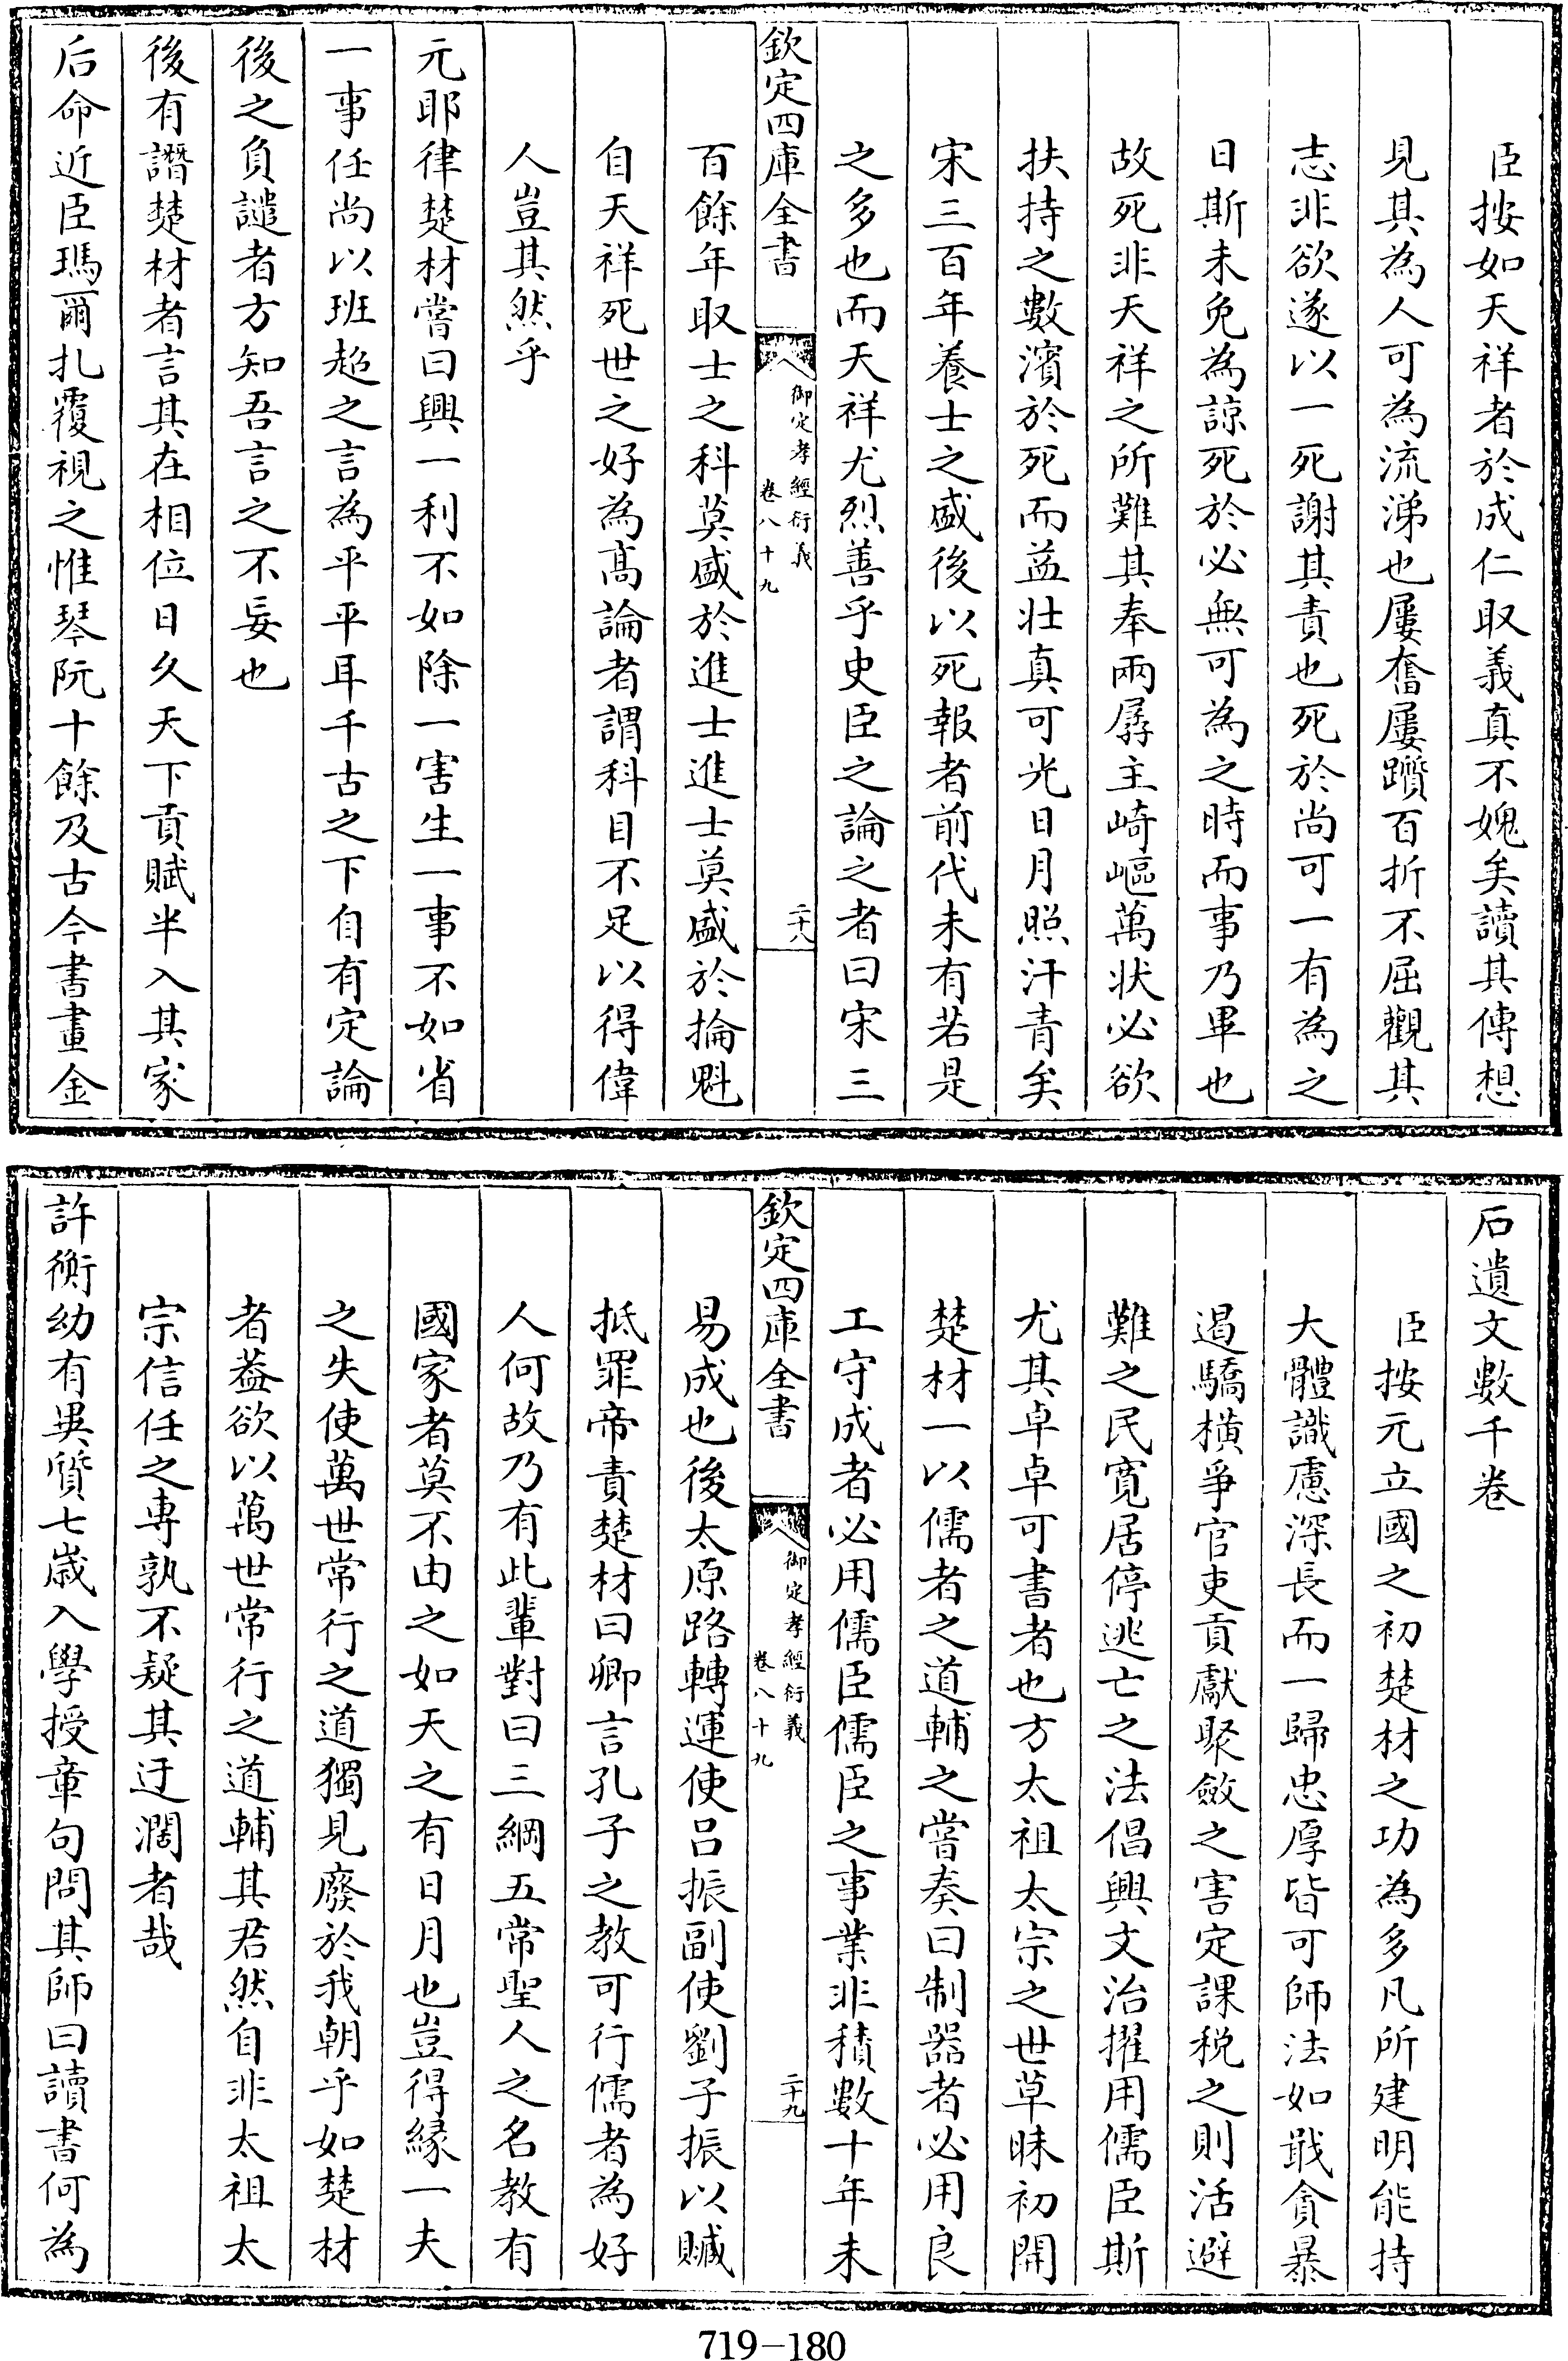 臣按如天祥者於成仁取義真不媿矣讀其傳想
見其為人可為流涕也屢奮屢躓百折不屈觀其
志非欲遂以一死謝其責也死於尚可一有為之
日斯未免為諒死於必無可為之時而事乃畢也
故死非天祥之所難其奉兩孱主崎嶇萬狀必欲
扶持之數濱於死而益壯真可光日月照汗青矣
宋三百年養士之盛後以死報者前代未有若是
之多也而天祥尤烈善乎史臣之論之者曰宋三
欽定四庫全書
御定孝經衍義
卷八十九
二十八
百餘年取士之科莫盛於進士進士莫盛於掄魁
自天祥死世之好為高論者謂科目不足以得偉
人豈其然乎
元耶律楚材嘗曰興一利不如除一害生一事不如省
一事任尚以班超之言為平平耳千古之下自有定論
後之負譴者方知吾言之不妄也
後有譖楚材者言其在相位日久天下貢賦半入其家
后命近臣瑪爾扎覆視之惟琴阮十餘及古今書畫金
石遺文數千卷
臣按元立國之初楚材之功為多凡所建明能持
大體識慮深長而一歸忠厚皆可師法如戢貪暴
遏驕橫爭官吏貢獻聚斂之害定課税之則活避
難之民寬居停逃亡之法倡興文治擢用儒臣斯
尤其卓卓可書者也方太祖太宗之世草昧初開
楚材一以儒者之道輔之嘗奏曰制器者必用良
工守成者必用儒臣儒臣之事業非積數十年未
欽定四庫全書
御定孝經衍義
卷八十九
二十九
易成也後太原路轉運使吕振副使劉子振以贓
抵罪帝責楚材曰卿言孔子之教可行儒者為好
人何故乃有此輩對曰三綱五常聖人之名教有
國家者莫不由之如天之有日月也豈得緣一夫
之失使萬世常行之道獨見廢於我朝乎如楚材
者葢欲以萬世常行之道輔其君然自非太祖太
宗信任之專孰不疑其迂濶者哉
許衡幼有異質七歲入學授章句問其師曰讀書何為
719-180